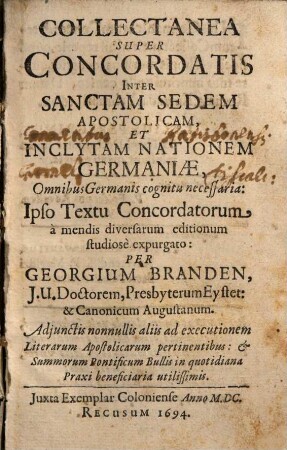 COLLECTANEA
SUPER
CONCORDATIS
INTER
SANCTAM SEDEM
APOSTOLICAM,
ET
INCLYTAM NATIONEM
GERMANIÆ,
Omnibus Germanis cognitu necessaria:
Ipso Textu Concordatorum
à mendis diversarum editionum
studiosè expurgato:
PER
GEORGIUM BRANDEN,
J.U. Doctorem, Presbyterum Eystet:
& Canonicum Augustanum.
Adjunctis nonnullis aliis ad executionem
Literarum Apostolicarum pertinentibus: &
Summorum Pontificum Bullis in quotidiana
Praxi beneficiaria utilissimis.
Juxta Exemplar Coloniense Anno M.DC.
RECUSUM 1694.